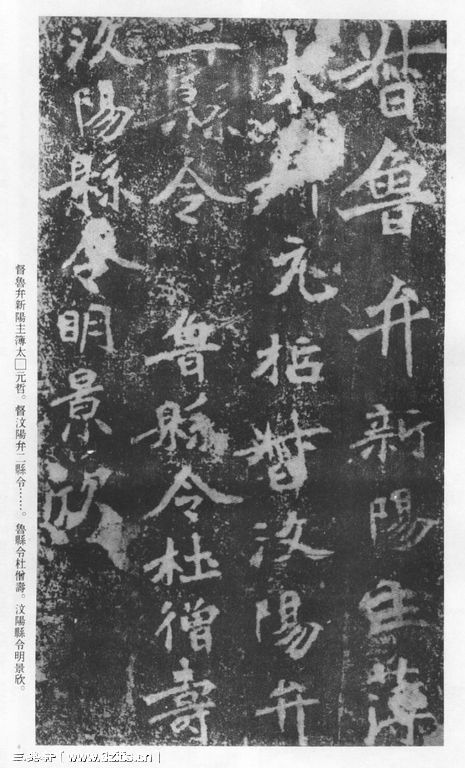 督魯弁新陽主薄
太 元哲督汶陽弁
二縣令 魯縣令杜僧壽
汶陽縣令明景欣
督魯弁新陽主薄太□元哲。督汶陽弁二縣令……。魯縣令杜僧壽。汶陽縣令明景欣。